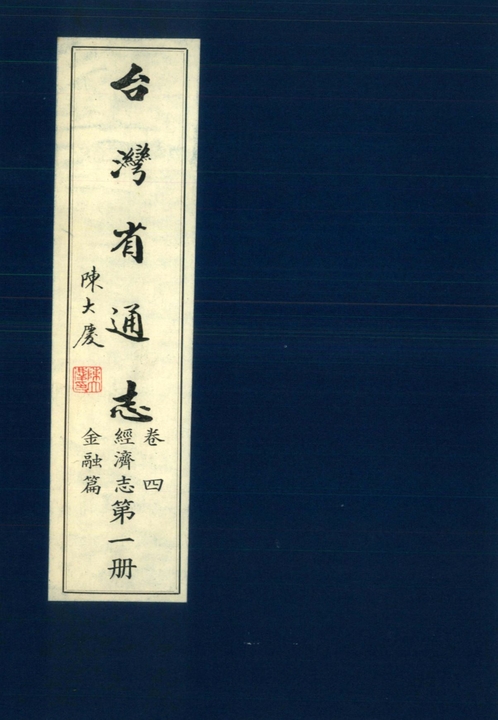 台灣省通志
卷四
經濟志第一册
金融篇
陳大慶